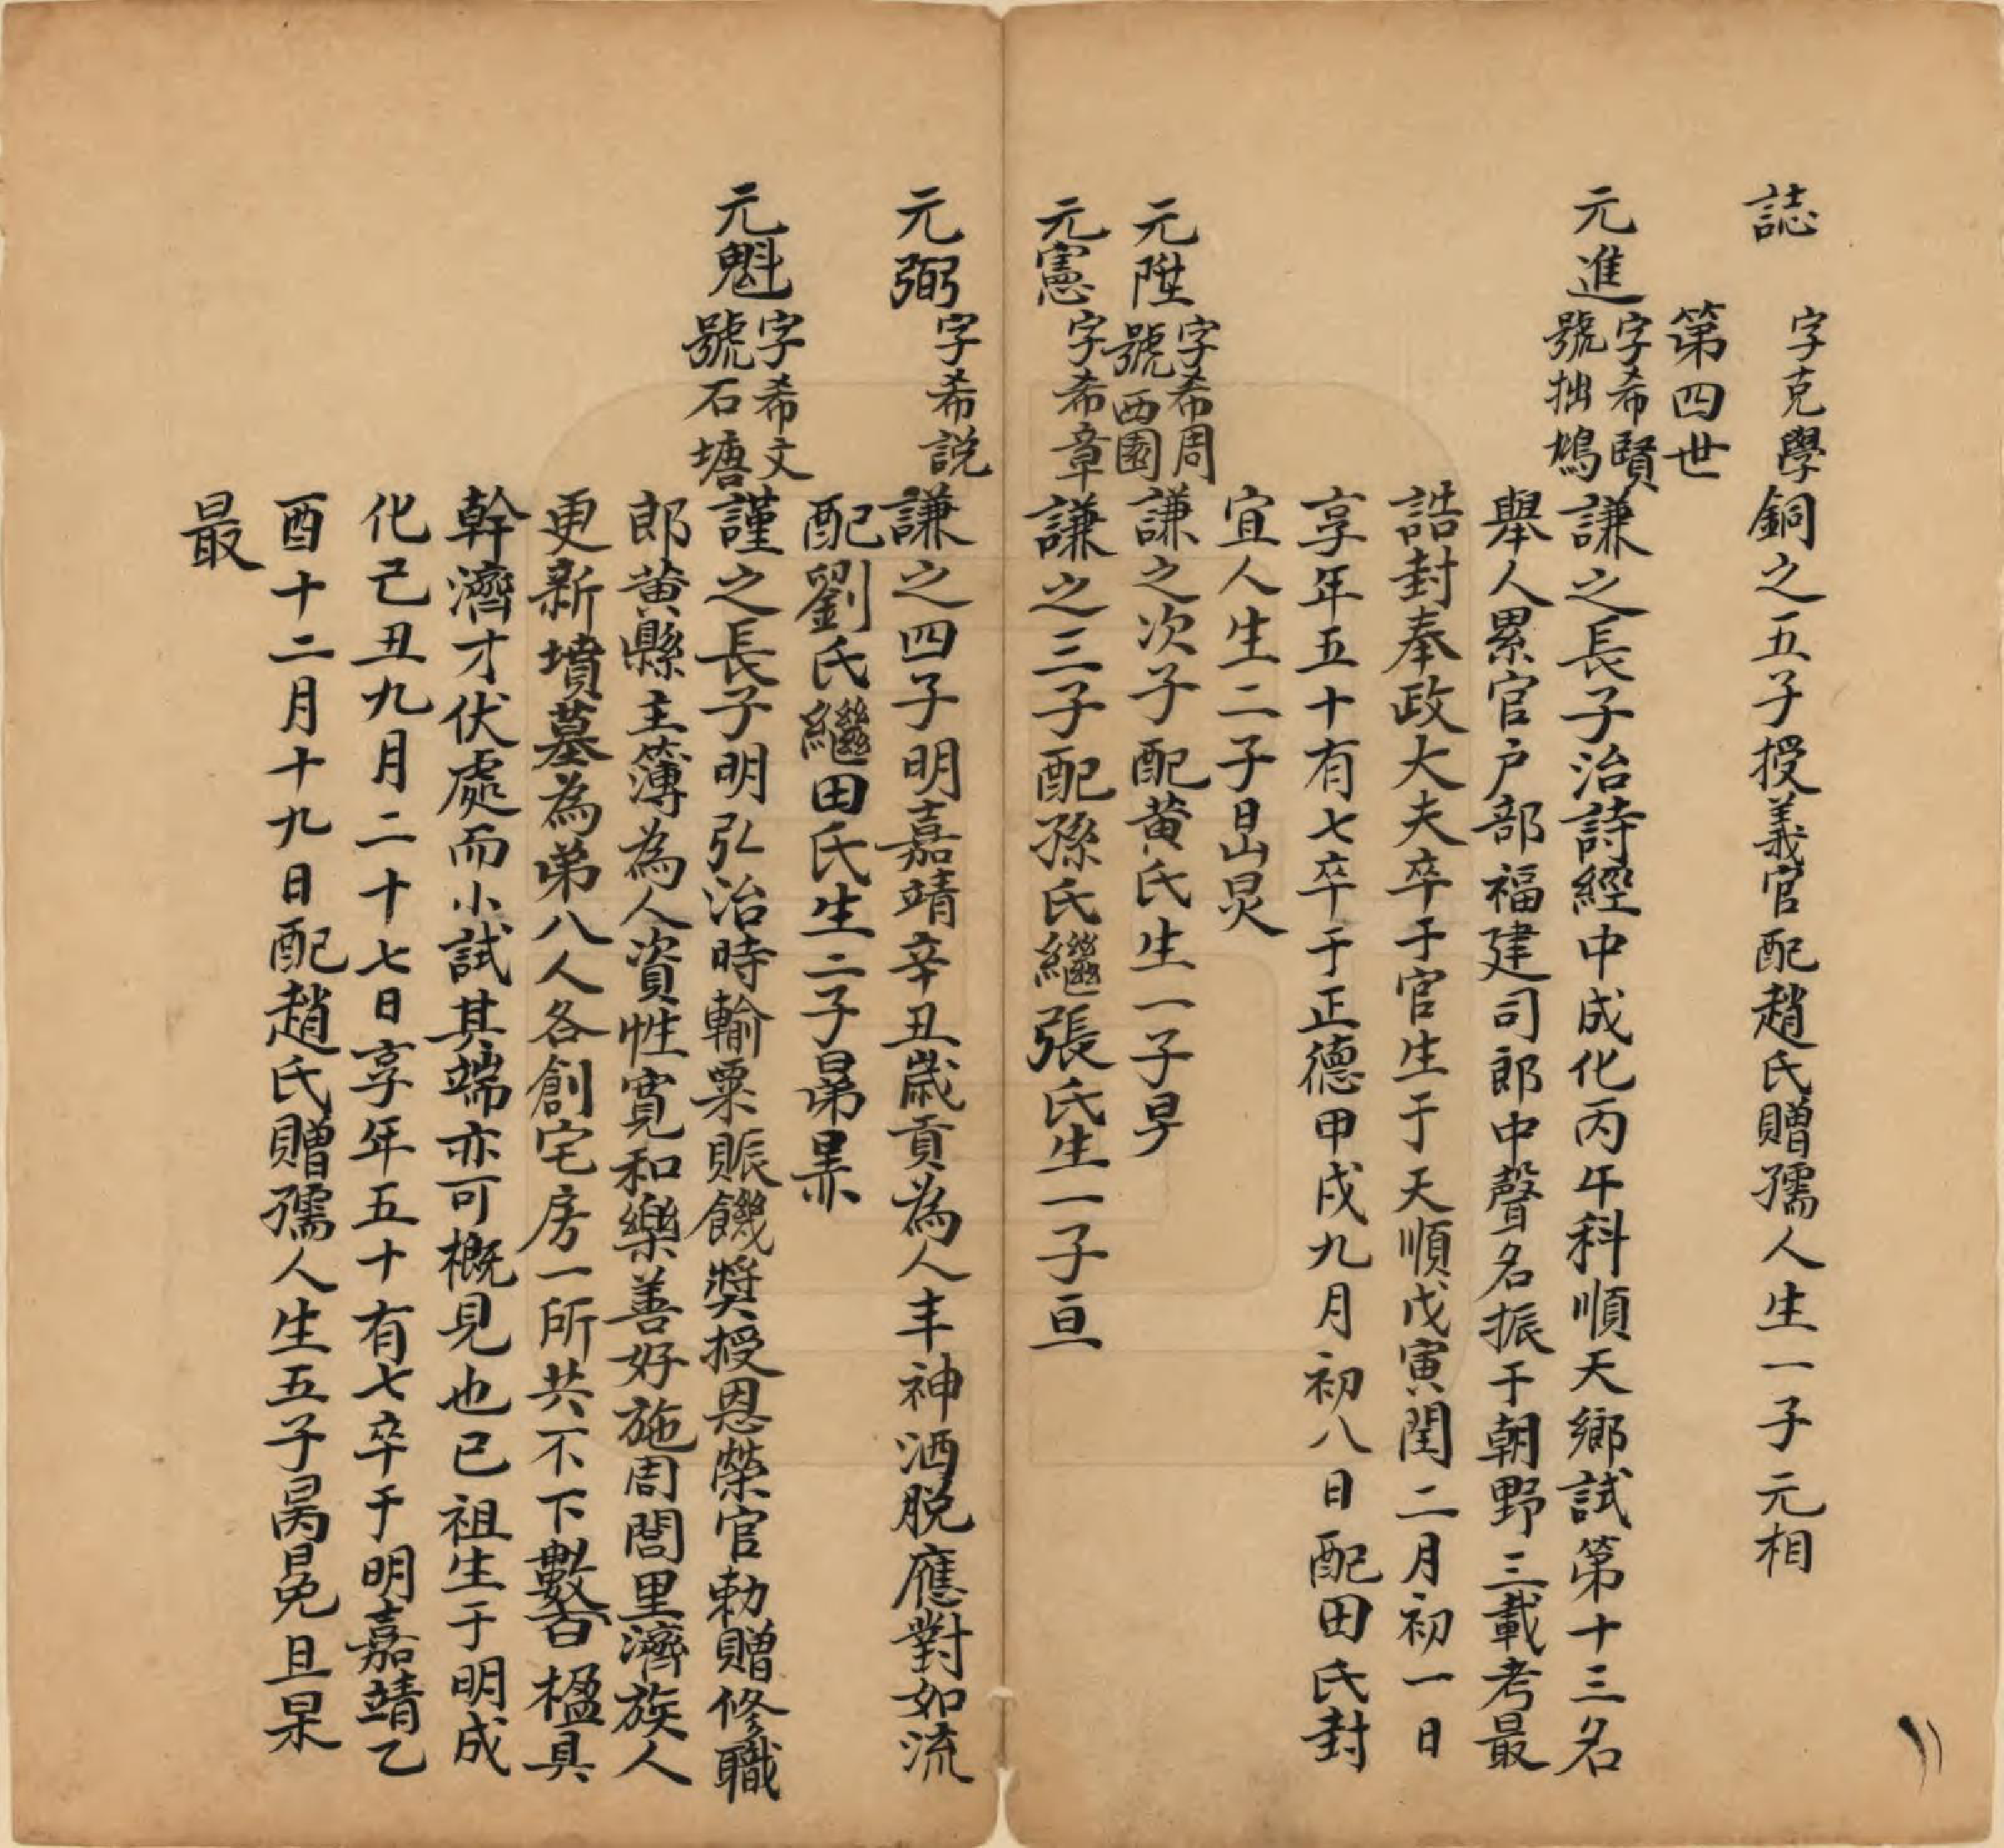 誌 字克學 銅之五子授義官配趙氏贈孺人生一子元相
第四世
元進 字希賢 號拙鳩 謙之長子治詩經中成化丙午科順天鄉試第十三名
舉人累官户部福建司郎中聲名振于朝野三載考最
誥封奉政大夫卒于官生于天順戊寅閏二月初一日
享年五十有七卒于正德甲戌九月初八日配田氏封
宜人生二子昷炅
元陞 字希周 號西園 謙之次子配黄氏生一子㝵
元憲 字希章 謙之三子配孫氏繼張氏生一子亘
元弼 字希説 謙之四子明嘉靖辛丑歲貢為人丰神洒脱應對如流
配劉氏繼田氏生二子㫕㬎
元魁 字希文 號石塘 謹之長子明弘治時輸粟賑饑奬授恩榮官勅贈修職
郎黄縣主簿為人資性寬和樂善好施周閭里濟族人
更新墳墓為弟八人各創宅房一所共不下數百楹具
幹濟才伏處而小試其端亦可概見也已祖生于明成
化己丑九月二十七日享年五十有七卒于明嘉靖乙
酉十二月十九日配趙氏贈孺人生五子昺晃旦杲
最